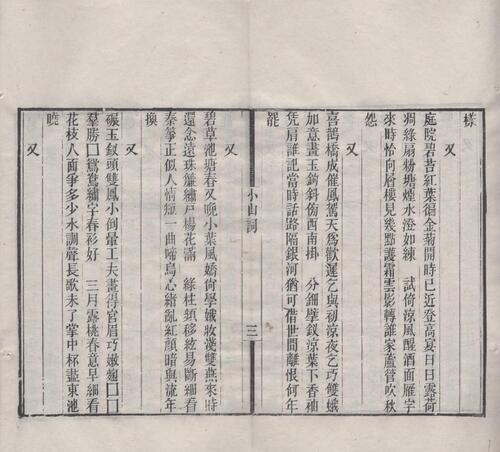 樣
又
庭院碧苔紅葉徧金菊開時已近登高宴日日露荷
凋綠扇粉塘煙水澄如練　試倚涼風醒酒面雁字
來時恰向層樓見幾點護霜雲影轉誰家蘆管吹秋
怨
又
喜鵲橋成催鳳駕天為歡遲乞與初涼夜乞巧雙蛾
加意畫玉鉤斜傍西南掛　分鈿擘釵涼葉下香袖
凭肩誰記當時話路隔銀河猶可借世間離恨何年
罷
小山詞
三
又
碧草池塘春又晚小葉風嬌尚學娥妝淺雙燕來時
還念遠珠簾繡戶楊花滿　綠柱頻移絃易斷細看
秦箏正似人情短一曲啼烏心緒亂紅顏暗與流年
換
又
碾玉釵頭雙鳳小倒暈工夫畫得宮眉巧嫩麴□□
羣勝□鴛鴦繡字春衫好　三月露桃春意早細看
花枝人面爭多少水調聲長歌未了掌中杯盡東池
曉